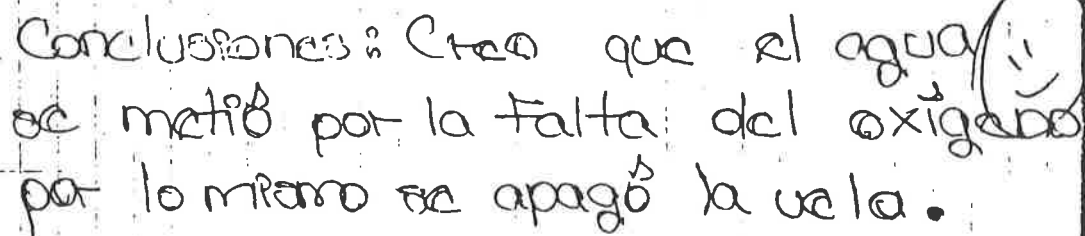 Conclusiones: Creo que el agua
se metió por la falta del oxígeno
por lo mismo se apagó la vela.